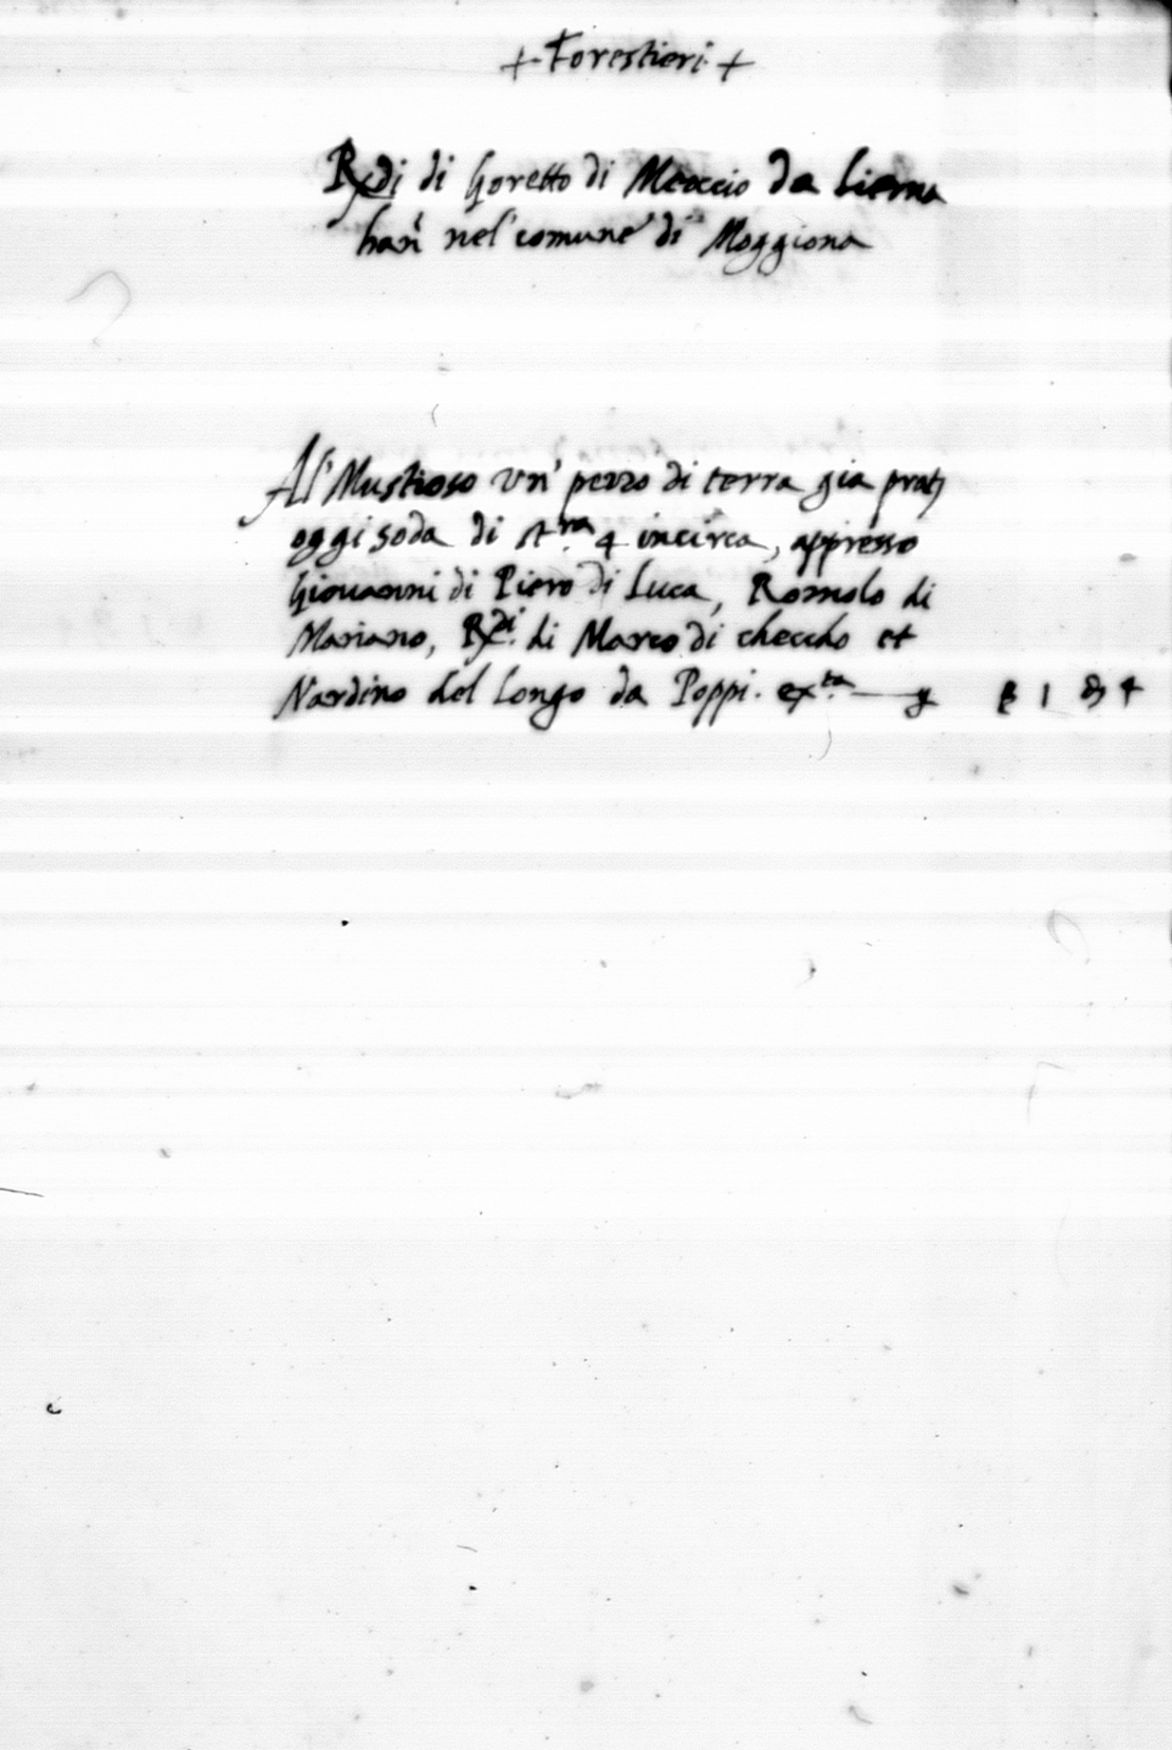 + Forestieri +
Rxdi di Goretto di Meoccio da Lierna
han' nel comune di Moggiona
Al' Mustioso vn' pezzo di terra gia prat
oggi soda di st.ra 4 incirca, appresso
Giouanni di Piero di Luca, Romolo di
Mariano, Rxdi. di Marco di checcho et
Nardino del Longo da Poppi. exta. 1 4